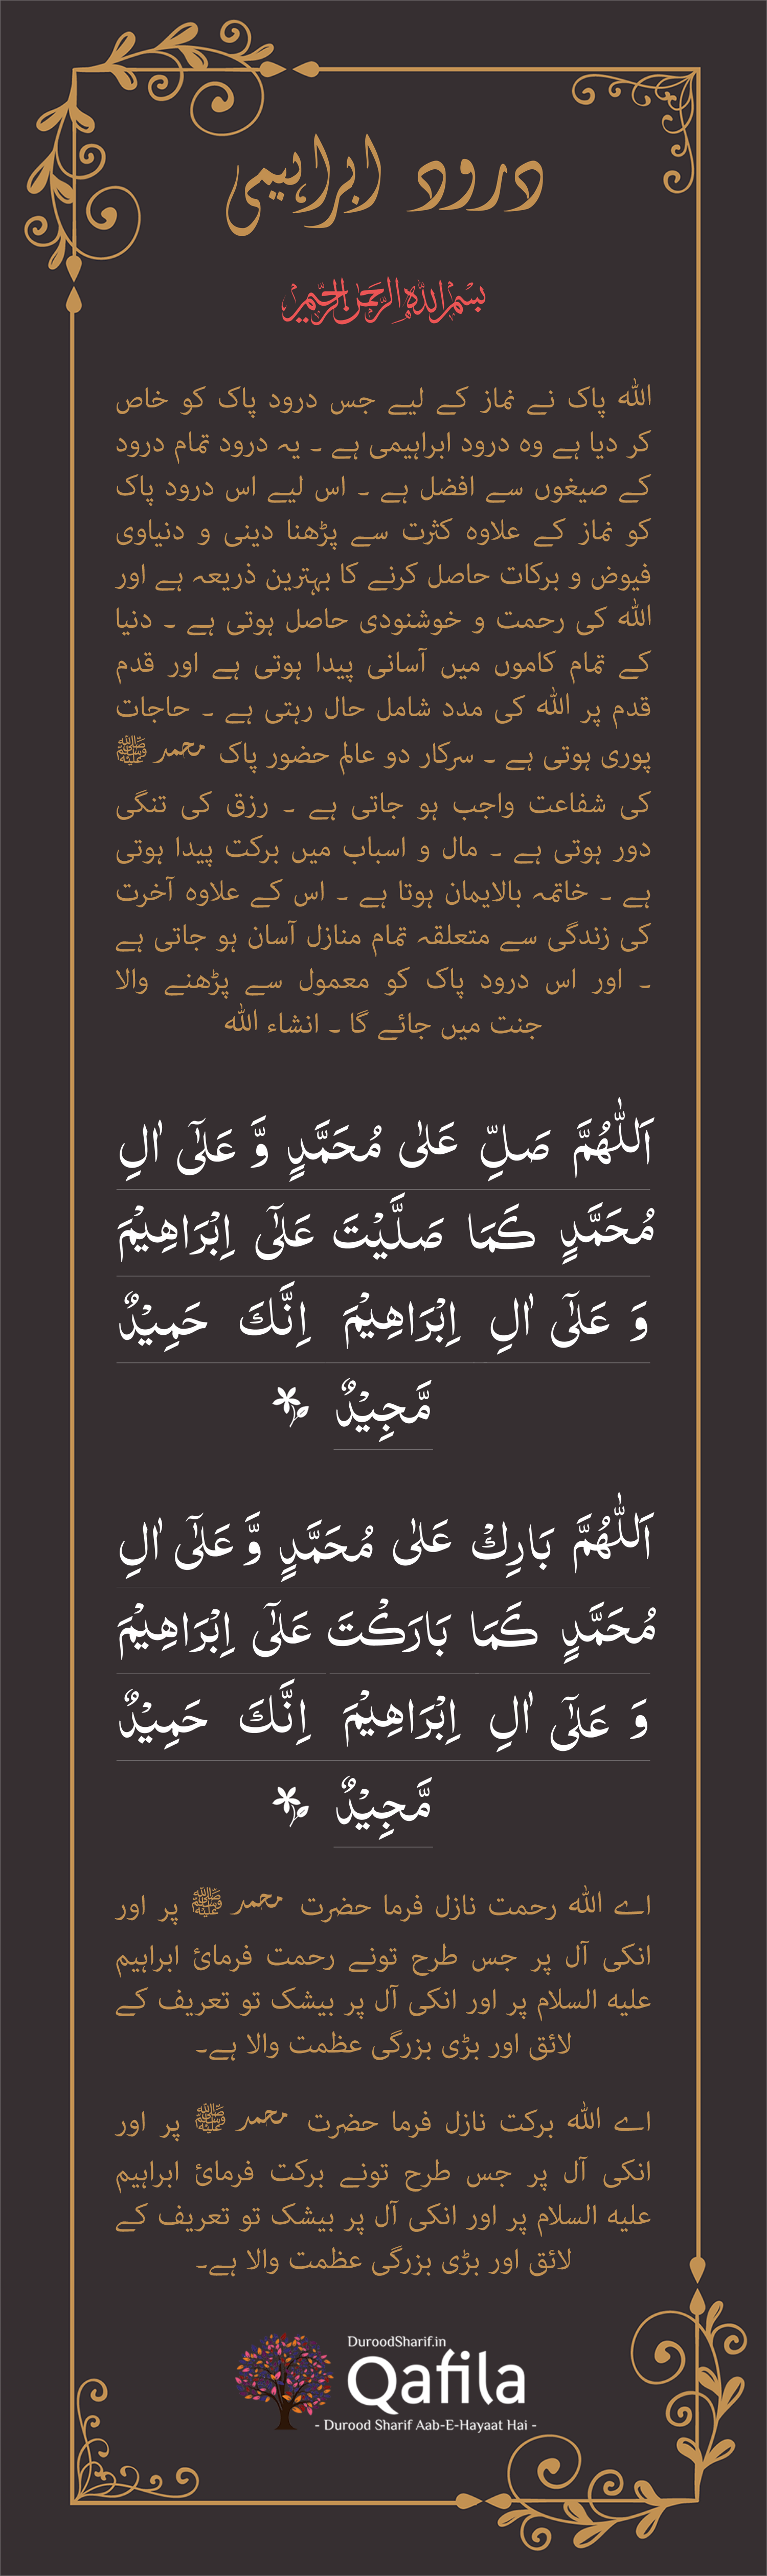 درود ابراہیمی
بسم الله الرحمن الرحيم
اللہ پاک نے نماز کے لیے جس درود پاک کو خاص
کر دیا ہے وہ درود ابراہیمی ہے ۔ یہ درود تمام درود
کے صیغوں سے افضل ہے ۔ اس لیے اس درود پاک
کو نماز کے علاوہ کثرت سے پڑھنا دینی و دنیاوی
فیوض و برکات حاصل کرنے کا بہترین ذریعہ ہے اور
اللہ کی رحمت و خوشنودی حاصل ہوتی ہے ۔ دنیا
کے تمام کاموں میں آسانی پیدا ہوتی ہے اور قدم
قدم پر اللہ کی مدد شامل حال رہتی ہے ۔ حاجات
پوری ہوتی ہے ۔ سرکار دو عالم حضور پاک محمد ﷺ
کی شفاعت واجب ہو جاتی ہے ۔ رزق کی تنگی
دور ہوتی ہے ۔ مال و اسباب میں برکت پیدا ہوتی
ہے ۔ خاتمہ بالایمان ہوتا ہے ۔ اس کے علاوہ آخرت
کی زندگی سے متعلقہ تمام منازل آسان ہو جاتی ہے
۔ اور اس درود پاک کو معمول سے پڑھنے والا
جنت میں جائے گا ۔ انشاء اللہ
اَللّٰهُمَّ صَلِّ عَلٰی مُحَمَّدٍ وَّ عَلٰٓی اٰلِ
مُحَمَّدٍ كَمَا صَلَّيْتَ عَلٰٓی اِبْرَاهِيْمَ
وَ عَلٰٓی اٰلِ اِبْرَاهِيْمَ اِنَّكَ حَمِيْدٌ
مَّجِيْدٌ
اَللّٰهُمَّ بَارِكْ عَلٰی مُحَمَّدٍ وَّ عَلٰٓی اٰلِ
مُحَمَّدٍ كَمَا بَارَكْتَ عَلٰٓی اِبْرَاهِيْمَ
وَ عَلٰٓی اٰلِ اِبْرَاهِيْمَ اِنَّكَ حَمِيْدٌ
مَّجِيْدٌ
اے اللہ رحمت نازل فرما حضرت محمد ﷺ پر اور
انکی آل پر جس طرح تونے رحمت فرمائ ابراہیم
علیہ السلام پر اور انکی آل پر بیشک تو تعریف کے
لائق اور بڑی بزرگی عظمت والا ہے۔
اے اللہ برکت نازل فرما حضرت محمد ﷺ پر اور
انکی آل پر جس طرح تونے برکت فرمائ ابراہیم
علیہ السلام پر اور انکی آل پر بیشک تو تعریف کے
لائق اور بڑی بزرگی عظمت والا ہے۔
DuroodSharif.in
Qafila
- Durood Sharif Aab-E-Hayaat Hai -